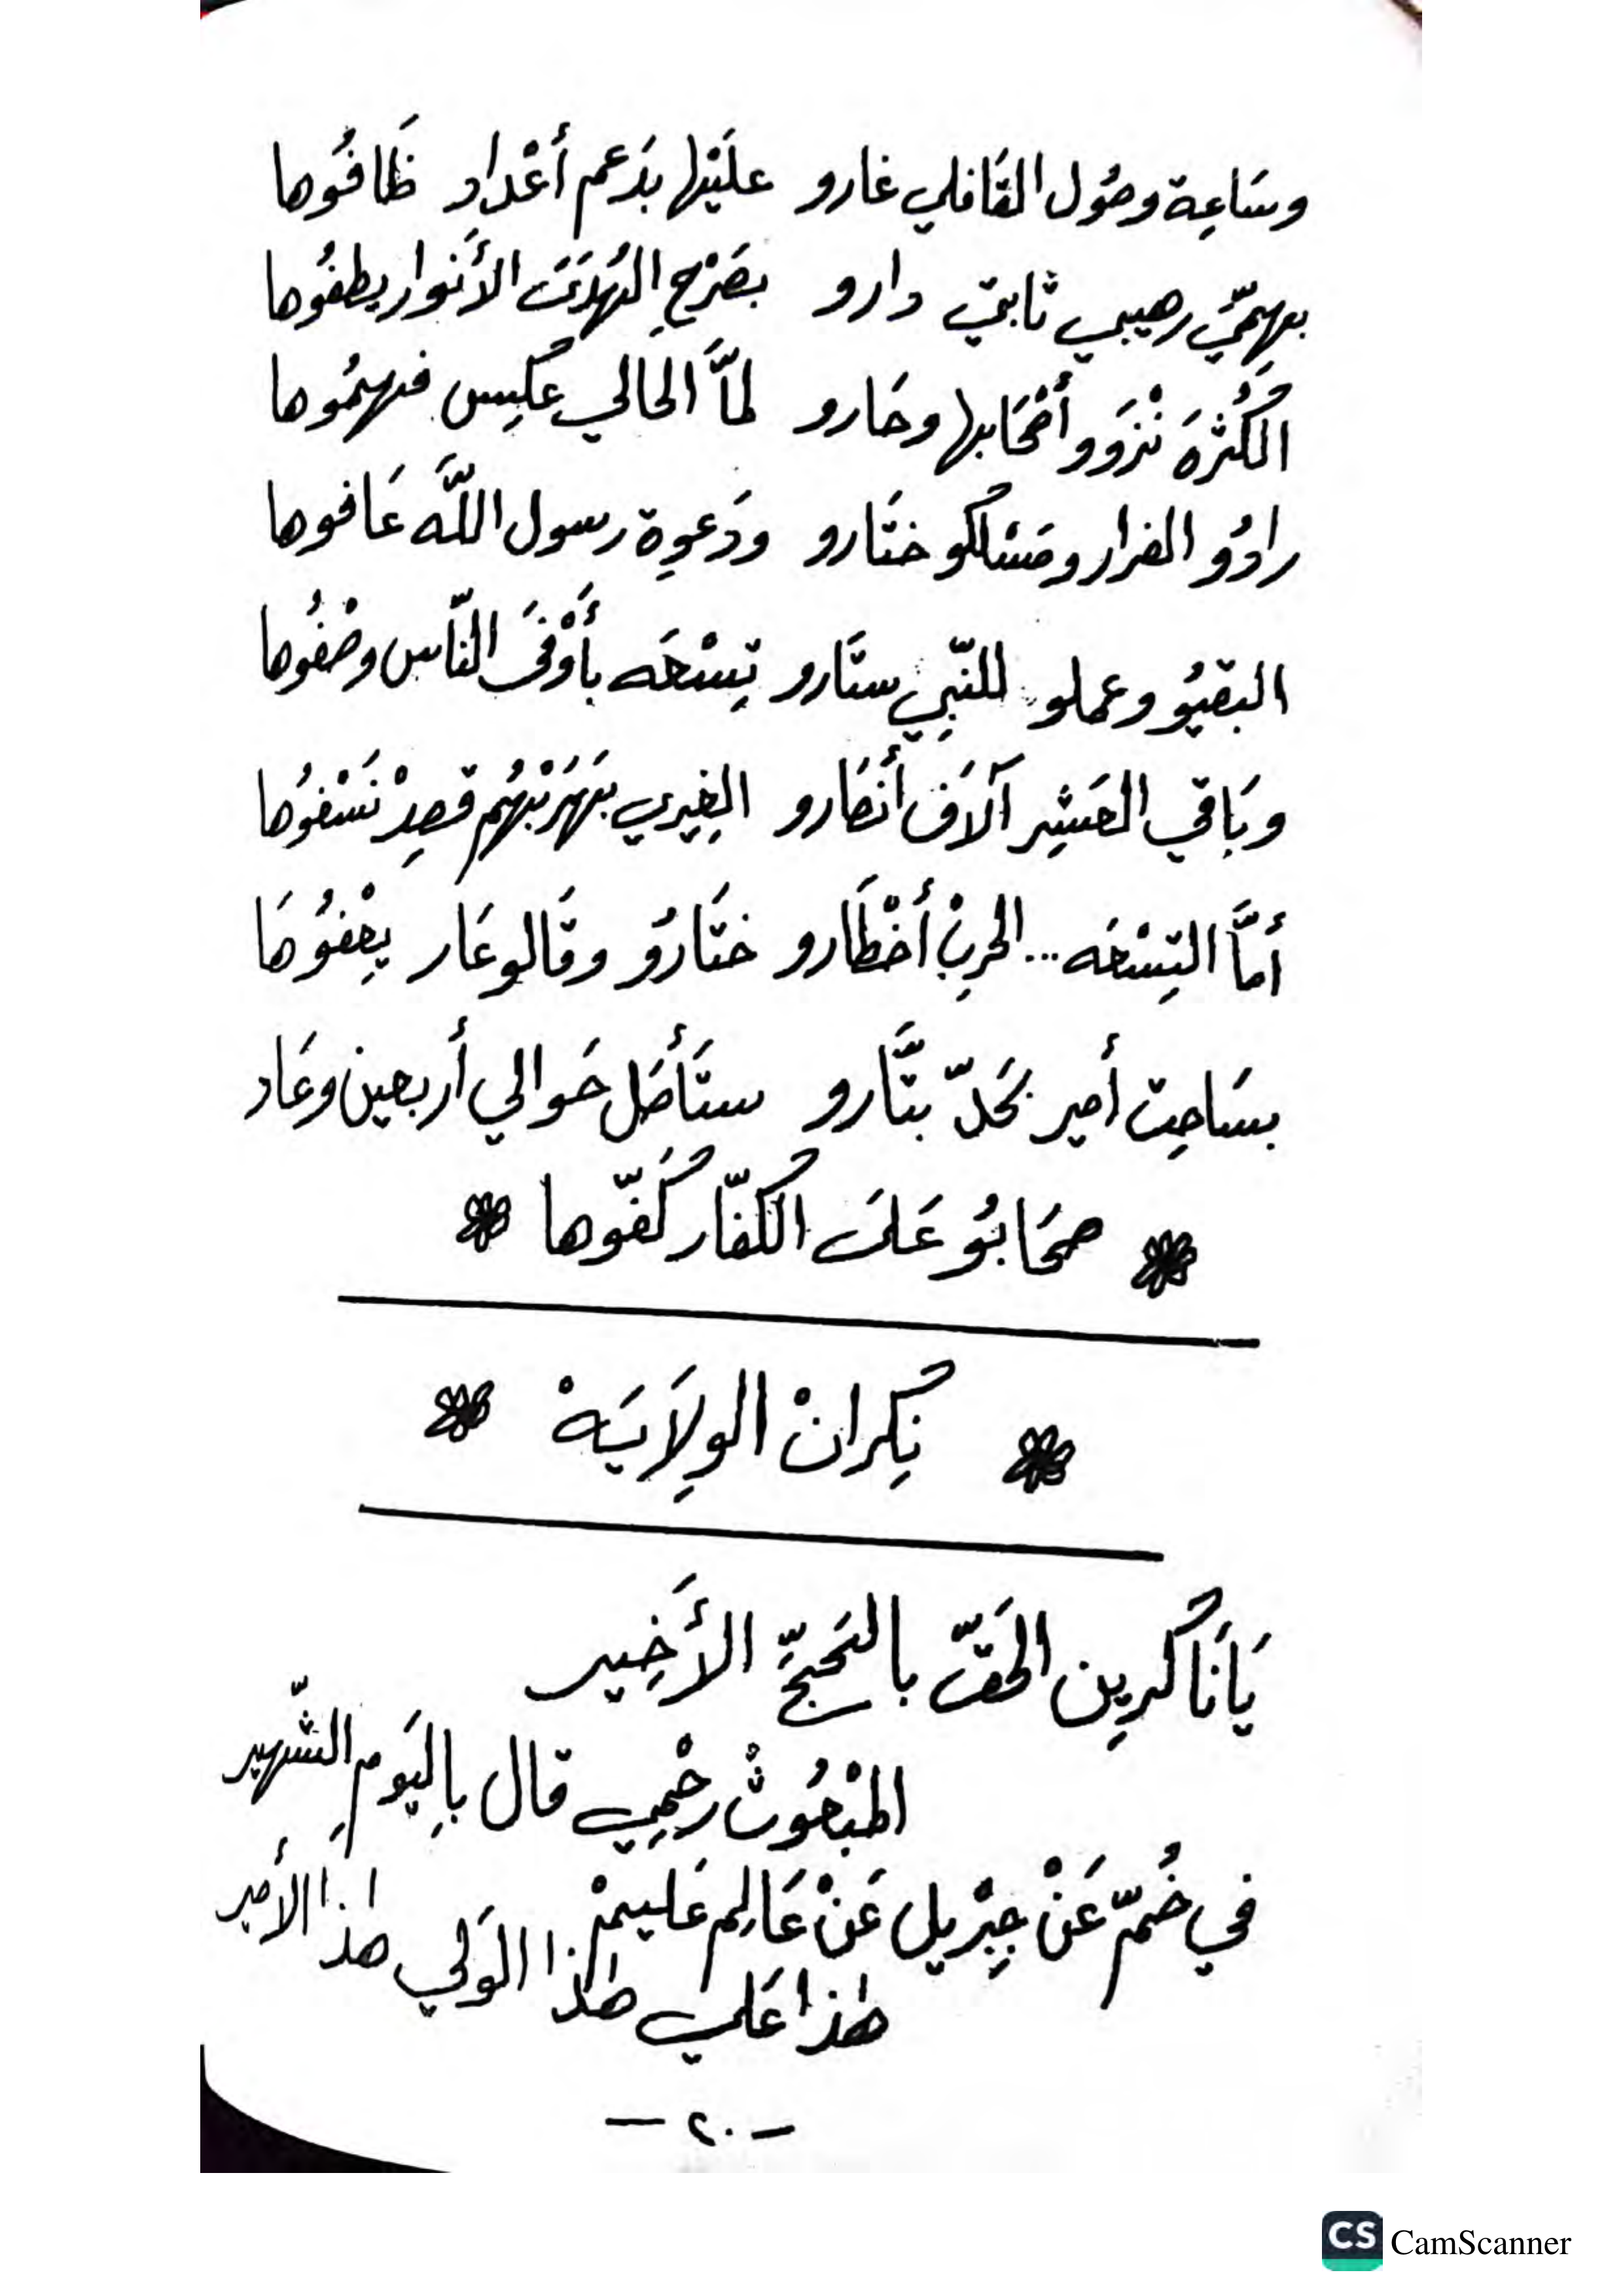 وسَاعِة وصُول القَافلي غارو علَيْها بدَعم أعْداد ظَافُوها
بهِمِّي رهيبي ثابتي دارو بصَرْحِ الهُدَىَ الأَنوار يطفُوها
الكُثرَه نْزَوو أصْحَابها وحَارو لمَّا الحالي عكِيس فهمُوها
رادُو الفرار ومَسْلكُو ختَارو ودَعوِة رسول اللَّه عَافوها
البقيُو وعملو للنّبِي ستَّارو تِسْعَه بأَوْفَى النَّاس وصْفُوها
وبَاقي العَشِر آلاَف أنصَارو الغِيري بهَرَبْهُم قصِدْ نَسْفُوهَا
أمَّا التِسْعَه ... الحربْ أخْطَارو ختَارُو وقَالو عَار يِعْفُوهَا
بسَاحِت أمير بحَدّ بتَّارو ستَأصَل حَوالي أربعين وعَاد
صحَابُو عَلىَ الكُفّار كَفّوها
نِكرانْ الولاَيَهْ
يَانَاكُرِين الحَقّ بالحَجّ الأَخِير
المَبْعُوثْ رحْمِي قال بِاليَومِ الشّهير
في خُمّ عَنْ جِبْريل عَنْ عَالِم عَليمْ
هٰذا عَلي هٰذا الوَلي هٰذا الأَمير
- ٢٠ -
CS CamScanner